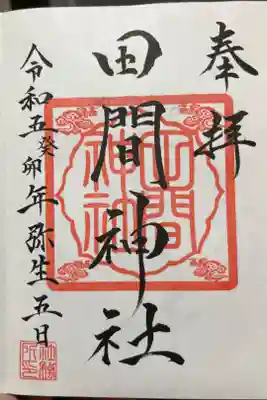 奉拝
田間神社
令和五癸卯年弥生五日
田間神社